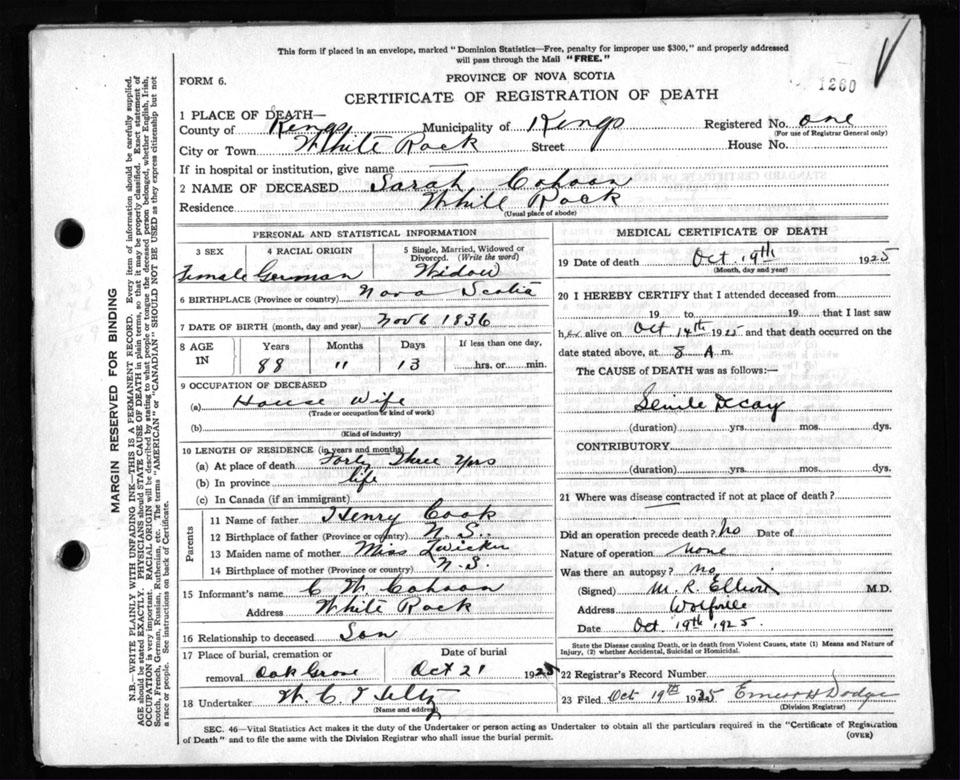 This form if placed in an envelope, marked "Dominion Statistics—Free, penalty for improper use $300," and properly addressed
will pass through the Mail "FREE."
FORM 6.
PROVINCE OF NOVA SCOTIA
1260
CERTIFICATE OF REGISTRATION OF DEATH
1 PLACE OF DEATH—
County of Kings Municipality of Kings Registered No. one
(For use of Registrar General only)
City or Town White Rock Street House No.
If in hospital or institution, give name
2 NAME OF DECEASED Sarah Cohoon
Residence White Rock
(Usual place of abode)
PERSONAL AND STATISTICAL INFORMATION
3 SEX 4 RACIAL ORIGIN 5 Single, Married, Widowed or
Divorced. (Write the word)
Female German Widow
6 BIRTHPLACE (Province or country) Nova Scotia
7 DATE OF BIRTH (month, day and year) Nov 6 1836
8 AGE IN Years Months Days If less than one day,
88 11 13 hrs. or min.
9 OCCUPATION OF DECEASED
(a) House Wife
(Trade or occupation or kind of work)
(b)
(Kind of industry)
10 LENGTH OF RESIDENCE (in years and months)
(a) At place of death Forty Three Yrs
(b) In province life
(c) In Canada (if an immigrant)
Parents
11 Name of father Henry Cook
12 Birthplace of father (Province or country) N.S.
13 Maiden name of mother Miss Zwicker
14 Birthplace of mother (Province or country) N.S.
15 Informant's name C W Cohoon
Address White Rock
16 Relationship to deceased Son
17 Place of burial, cremation or Date of burial
removal Oak Grove Oct 21 1925
18 Undertaker W. C.
(Name and address)
MEDICAL CERTIFICATE OF DEATH
19 Date of death Oct. 19th 1925
(Month, day and year)
20 I HEREBY CERTIFY that I attended deceased from
19 to 19 that I last saw
her alive on Oct 14th 1925 and that death occurred on
date stated above, at 8 A m.
The CAUSE of DEATH was as follows:—
Senile Decay
(duration) yrs. mos. dys.
CONTRIBUTORY.
(duration) yrs. mos. dys.
21 Where was disease contracted if not at place of death?
Did an operation precede death? no Date of
Nature of operation none
Was there an autopsy? no
(Signed) M. R. Elliott M.D.
Address Wolfville
Date Oct. 19th 1925.
State the Disease causing Death, or in death from Violent Causes, state (1) Means and Nature of
Injury, (2) whether Accidental, Suicidal or Homicidal.
22 Registrar's Record Number
23 Filed Oct 19th 1925 Ernest H Dodge
(Division Registrar)
SEC. 46—Vital Statistics Act makes it the duty of the Undertaker or person acting as Undertaker to obtain all the particulars required in the "Certificate of Registration
of Death" and to file the same with the Division Registrar who shall issue the burial permit.
(OVER)
MARGIN RESERVED FOR BINDING
N.B.—WRITE PLAINLY WITH UNFADING INK—THIS IS A PERMANENT RECORD. Every item of information should be carefully supplied.
AGE should be stated EXACTLY. PHYSICIANS should STATE CAUSE OF DEATH in plain terms, so that it may be properly classified. Exact statement of
OCCUPATION is very important. RACIAL ORIGIN will be described by stating to what people or tongue the deceased person belonged, whether English, Irish,
Scotch, French, German, Russian, Ruthenian, etc. The terms "AMERICAN" or "CANADIAN" SHOULD NOT BE USED as they express citizenship but not
a race or people. See instructions on back of Certificate.